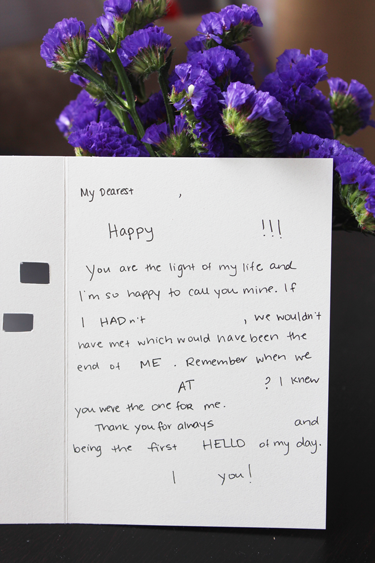 My Dearest ,
Happy !!!
You are the light of my life and
I'm so happy to call you mine. If
I HADn't , we wouldn't
have met which would have been the
end of ME . Remember when we
AT ? I knew
you were the one for me.
Thank you for always and
being the first HELLO of my day.
I you!